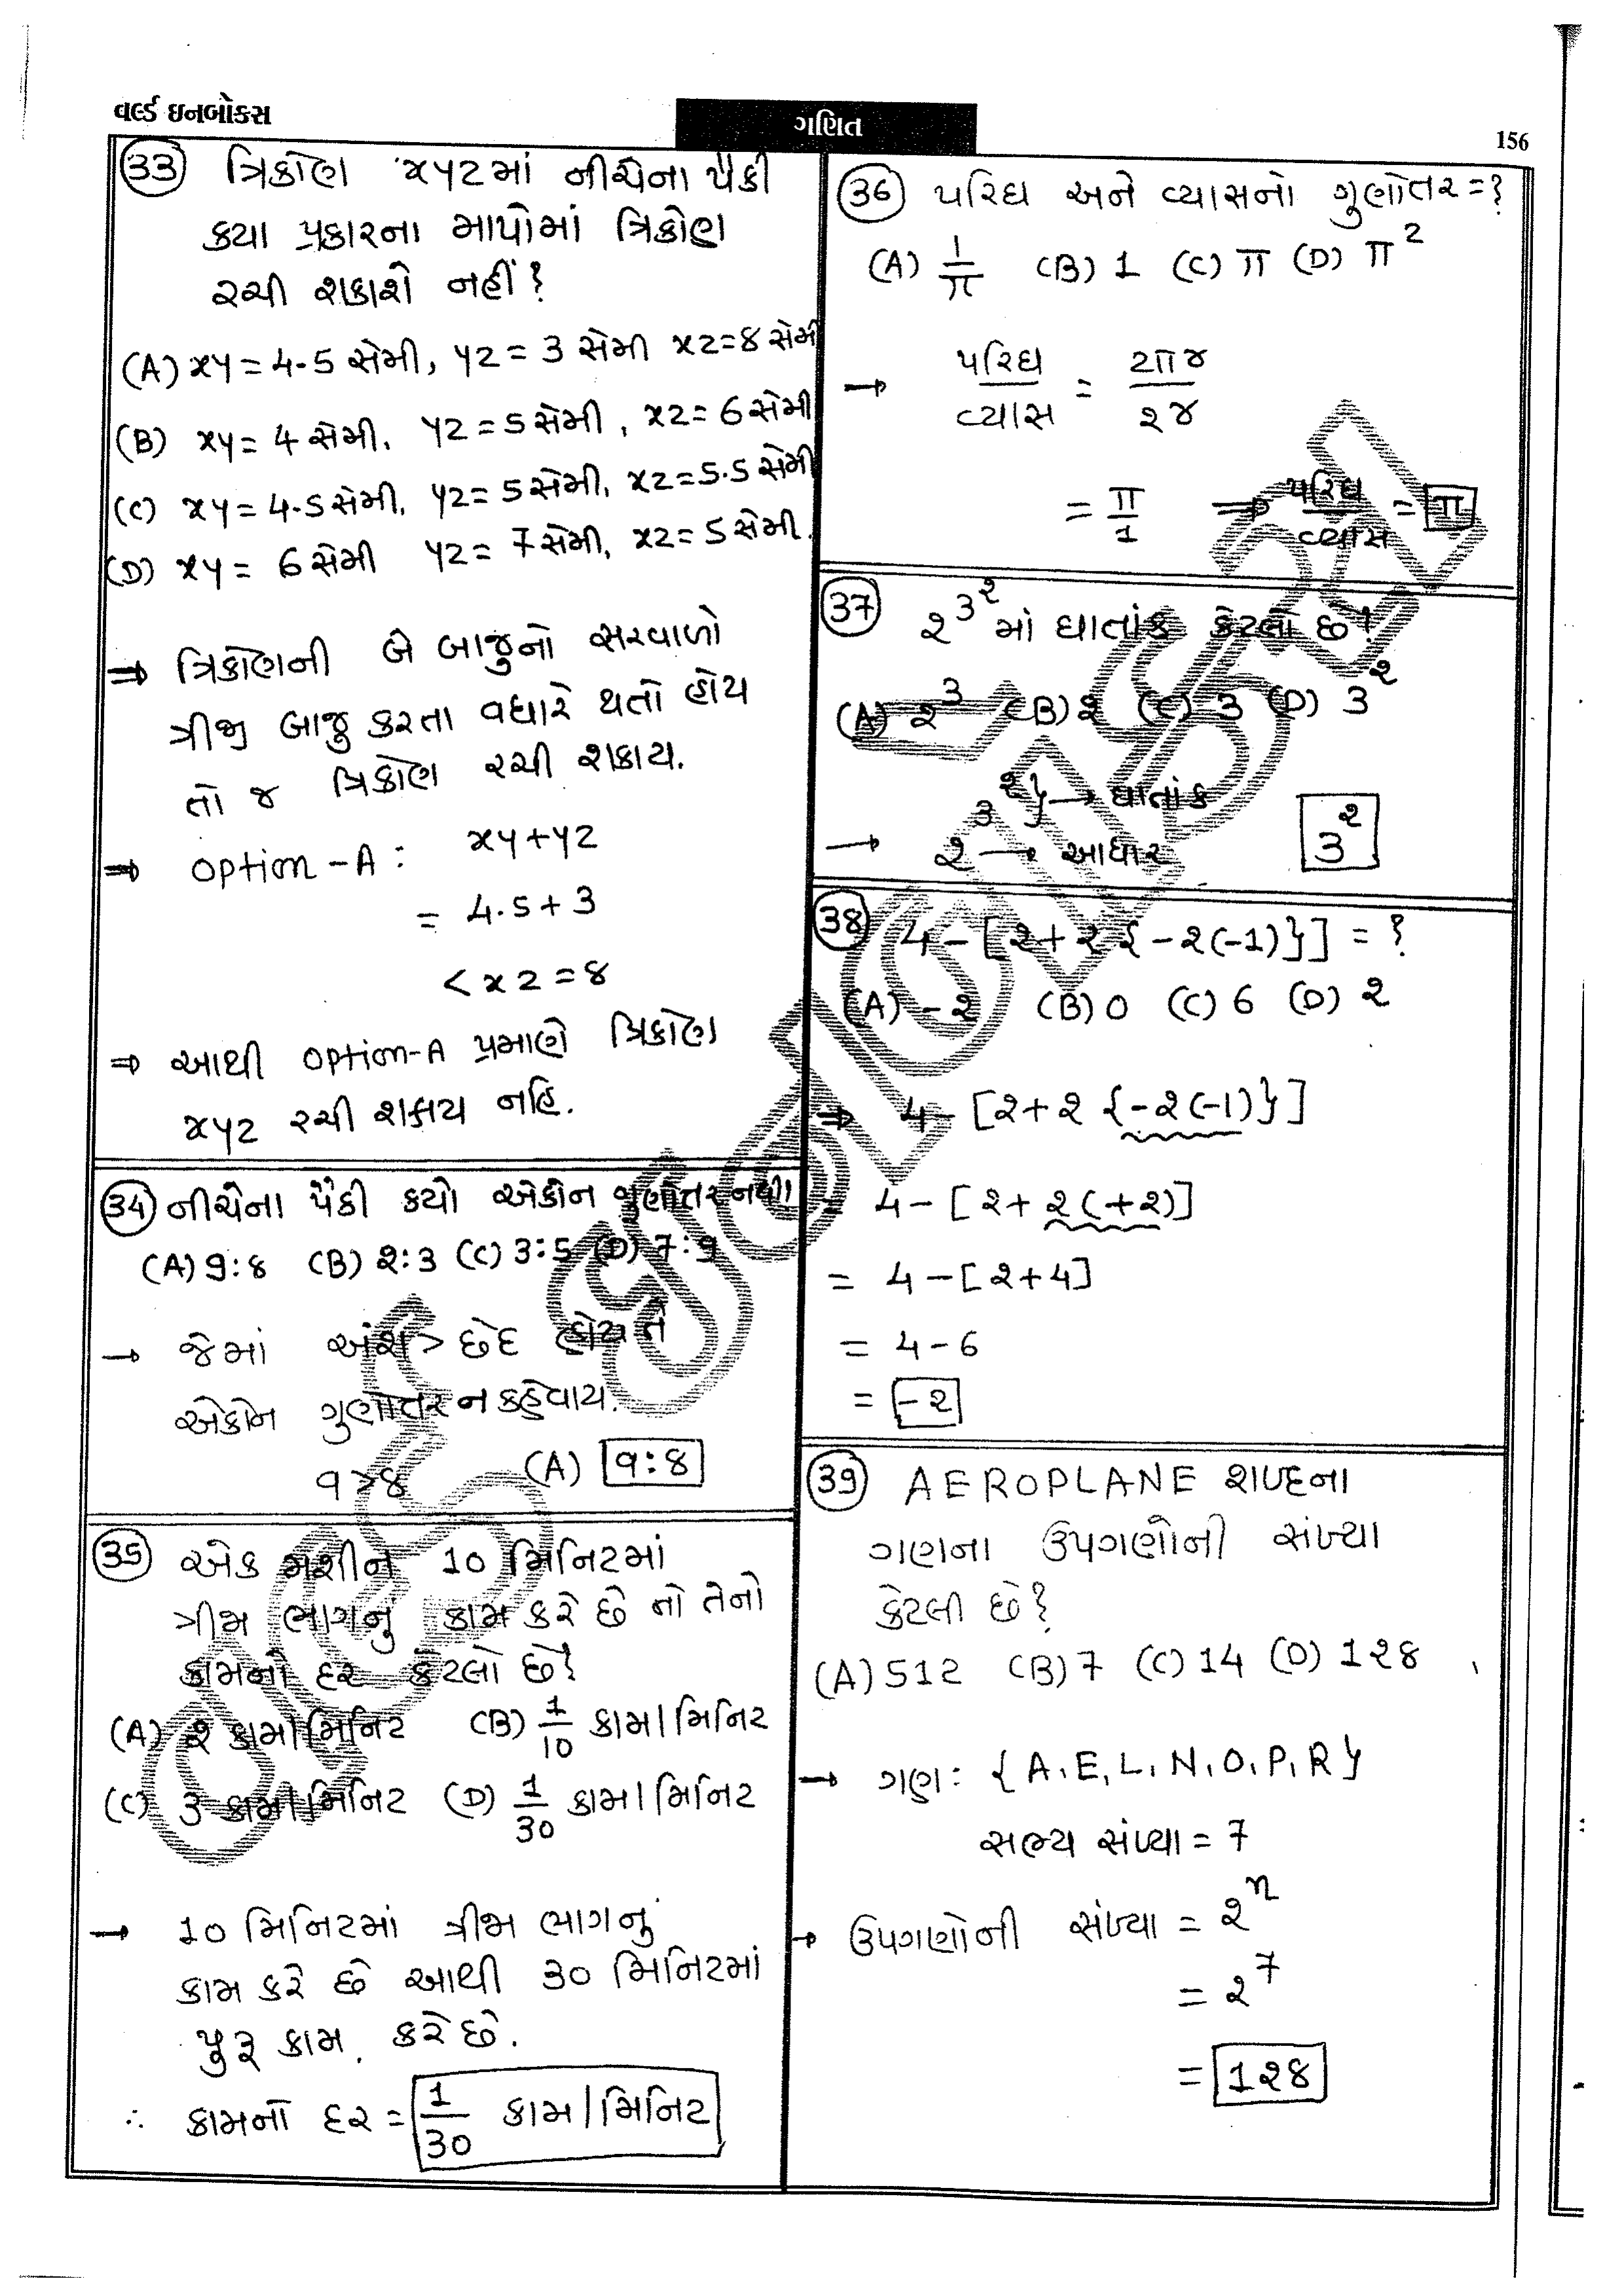 વર્લ્ડ ઇનબોક્સ
ગણિત
156
33 ત્રિકોણ XYZ માં નીચેના પૈકી
કયા પ્રકારના માપોમાં ત્રિકોણ
રચી શકાશે નહીં?
(A) XY = 4.5 સેમી, YZ = 3 સેમી XZ = 8 સેમી
(B) XY = 4 સેમી, YZ = 5 સેમી, XZ = 6 સેમી
(C) XY = 4.5 સેમી, YZ = 5 સેમી, XZ = 5.5 સેમી
(D) XY = 6 સેમી YZ = 7 સેમી, XZ = 5 સેમી.
⇒ ત્રિકોણની બે બાજુનો સરવાળો
ત્રીજી બાજુ કરતા વધારે થતો હોય
તો જ ત્રિકોણ રચી શકાય.
⇒ option-A : XY+YZ
= 4.5+3
< XZ = 8
⇒ આથી option-A પ્રમાણે ત્રિકોણ
XYZ રચી શકાય નહિ.
34 નીચેના પૈકી કયો એકોન ગુણોતર નથી
(A) 9:8 (B) 2:3 (C) 3:5 (D) 7:9
→ જેમાં અંશ > છેદ હોય તે
એકોન ગુણોતર ન કહેવાય.
9 > 8 (A) 9:8
35 એક મશીન 10 મિનિટમાં
ત્રીજા ભાગનું કામ કરે છે તો તેનો
કામનો દર કેટલો છે?
(A) 2 કામ/મિનિટ (B) 1/10 કામ/મિનિટ
(C) 3 કામ/મિનિટ (D) 1/30 કામ/મિનિટ
→ 10 મિનિટમાં ત્રીજા ભાગનું
કામ કરે છે આથી 30 મિનિટમાં
પુરૂ કામ કરે છે.
∴ કામનો દર = 1/30 કામ/મિનિટ
36 પરિઘ અને વ્યાસનો ગુણોતર = ?
(A) 1/π (B) 1 (C) π (D) π²
→ પરિઘ/વ્યાસ = 2πr/2r
= π/1 ⇒ પરિઘ/વ્યાસ = π
37 2^3^2 માં ઘાતાંક કેટલો છે?
(A) 2³ (B) 2 (C) 3 (D) 3²
3²} → ઘાતાંક
→ 2 → આધાર 3²
38 4-[2+2{-2(-1)}] = ?
(A) -2 (B) 0 (C) 6 (D) 2
⇒ 4-[2+2{-2(-1)}]
= 4-[2+2(+2)]
= 4-[2+4]
= 4-6
= -2
39 AEROPLANE શબ્દના
ગણના ઉપગણોની સંખ્યા
કેટલી છે?
(A) 512 (B) 7 (C) 14 (D) 128
→ ગણ: {A, E, L, N, O, P, R}
સભ્ય સંખ્યા = 7
→ ઉપગણોની સંખ્યા = 2ⁿ
= 2⁷
= 128